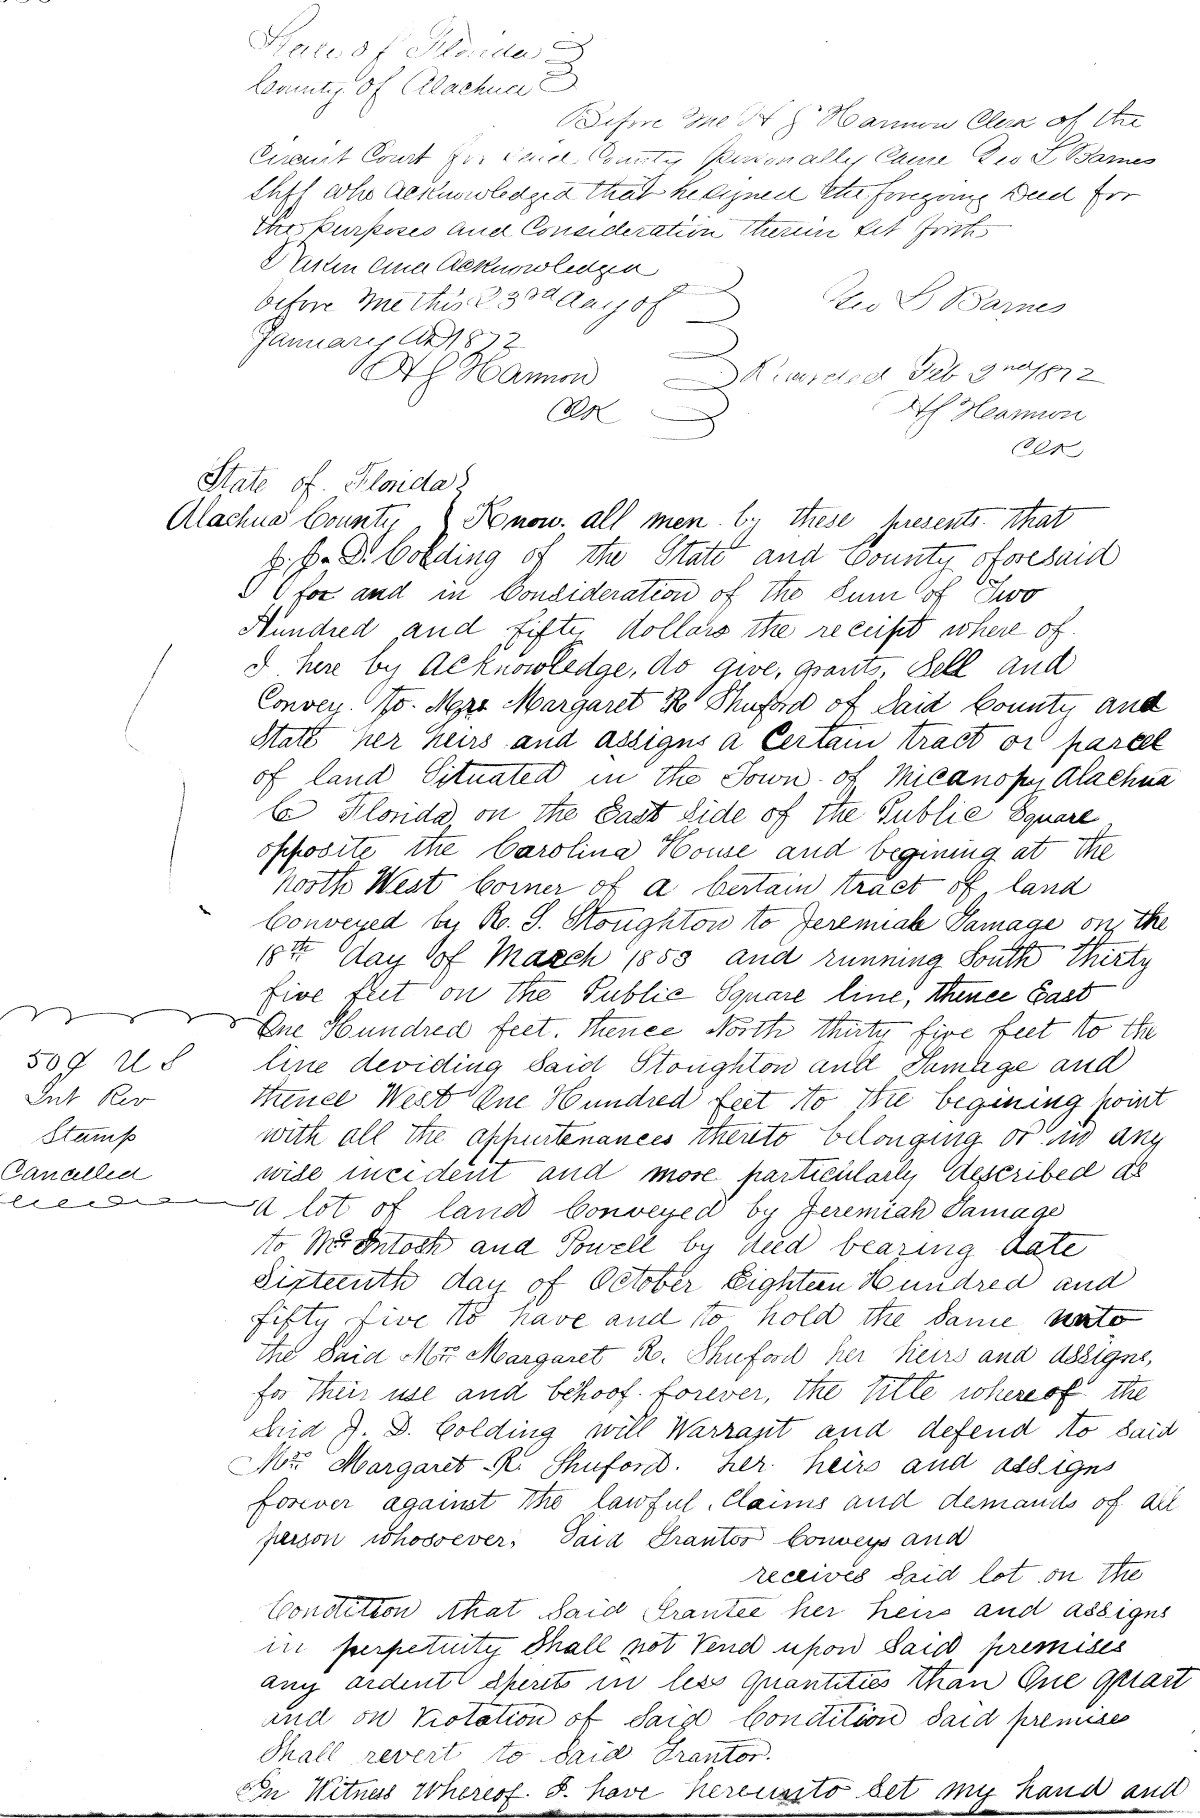 State of Florida
County of Alachua
Before me H S Harmon Clerk of the
Circuit Court for said County personally Came Geo L Barnes
Shff who Acknowledged that he signed the foregoing Deed for
the purposes and Consideration therein set forth
Taken and Acknowledged
before me this 23rd day of
Geo L Barnes
January AD 1872
H S Harmon
Recorded Feb 2nd 1872
Clk
H S Harmon
Clk
State of Florida
Alachua County } Know all men by these presents that
J. D. Colding of the State and County oforesaid
for and in Consideration of the Sum of Two
Hundred and fifty dollars the receipt where of
I here by Acknowledge, do give, grants, Sell and
Convey. to Mrs Margaret R Shuford of Said County and
State her heirs and assigns a Certain tract or parcel
of land Situated in the Town of Micanopy Alachua
Co Florida on the East Side of the Public Square
opposite the Carolina House and begining at the
North West Corner of a Certain tract of land
Conveyed by R. S. Stoughton to Jeremiah Tamage on the
18th day of March 1853 and running South thirty
five feet on the Public Square line, thence East
One Hundred feet. thence North thirty five feet to the
line deviding Said Stoughton and Tamage and
thence West One Hundred feet to the begining point
with all the appurtenances thereto belonging or in any
wise incident and more particularly described as
a lot of land Conveyed by Jeremiah Tamage
to McIntosh and Powell by deed bearing date
Sixteenth day of October Eighteen Hundred and
fifty five to have and to hold the Same unto
the Said Mrs Margaret R. Shuford her heirs and assigns,
for their use and behoof forever, the title whereof the
Said J. D. Colding will Warrant and defend to Said
Mrs Margaret R. Shuford. her heirs and assigns
forever against the lawful Claims and demands of all
person whosoever. Said Grantor Conveys and
receives Said lot on the
Condition that Said Grantee her heirs and assigns
in perpetuity Shall not Vend upon Said premises
any ardent Sperits in less quantities than One quart
and on Violation of Said Condition Said premises
Shall revert to Said Grantor.
In Witness Whereof. I have hereunto Set my hand and
50¢ U S
Int Rev
Stamp
Cancelled